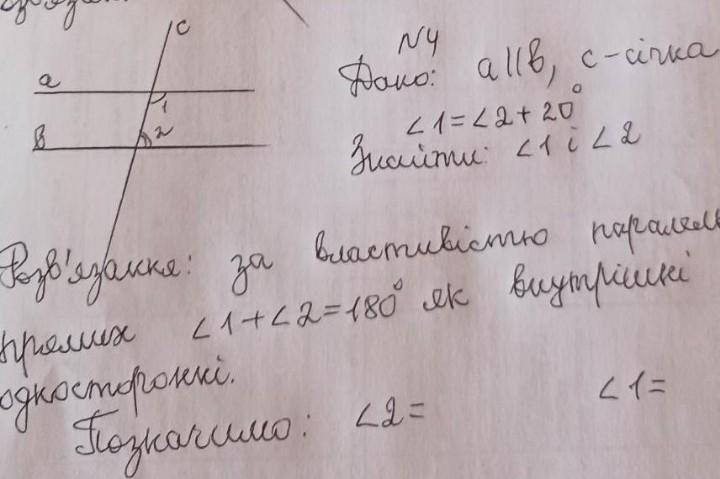 c
N4
Дано: a||b, c-січна
a
1
∠1=∠2+20°
2
b
Знайти: ∠1 і ∠2
Розв'язання: за властивістю паралель
прямих ∠1+∠2=180° як внутрішні
односторонні.
Позначимо: ∠2= ∠1=